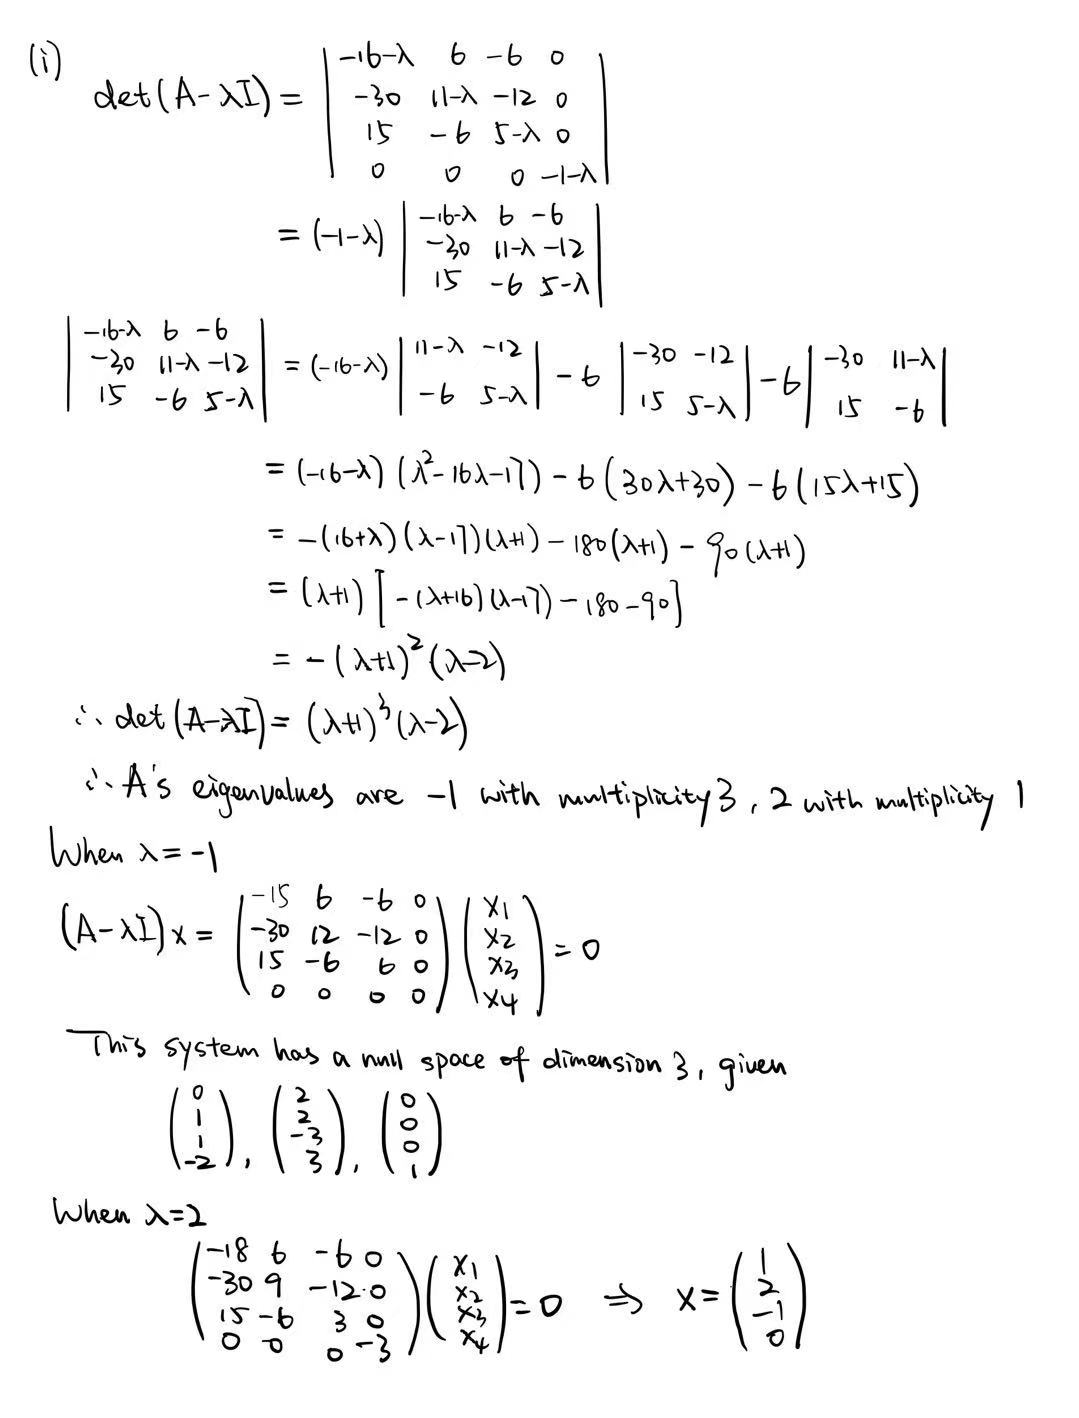 (i)
det(A-λI) = | -16-λ 6 -6 0 |
| -30 11-λ -12 0 |
| 15 -6 5-λ 0 |
| 0 0 0 -1-λ |
= (-1-λ) | -16-λ 6 -6 |
| -30 11-λ -12 |
| 15 -6 5-λ |
| -16-λ 6 -6 |
| -30 11-λ -12 |
| 15 -6 5-λ |
= (-16-λ) | 11-λ -12 | - 6 | -30 -12 | - 6 | -30 11-λ |
| -6 5-λ | | 15 5-λ | | 15 -6 |
= (-16-λ) (λ²-16λ-17) - 6 (30λ+30) - 6 (15λ+15)
= -(16+λ) (λ-17) (λ+1) - 180(λ+1) - 90(λ+1)
= (λ+1) [-(λ+16)(λ-17) - 180 - 90]
= -(λ+1)² (λ-2)
∴ det(A-λI) = (λ+1)³(λ-2)
∴ A's eigenvalues are -1 with multiplicity 3, 2 with multiplicity 1
When λ = -1
(A-λI) x = ( -15 6 -6 0 ) ( x1 ) = 0
( -30 12 -12 0 ) ( x2 )
( 15 -6 6 0 ) ( x3 )
( 0 0 0 0 ) ( x4 )
This system has a null space of dimension 3, given
( 0 ), ( 2 ), ( 0 )
( 1 ) ( 2 ) ( 0 )
( 1 ) ( -3 ) ( 0 )
( -2 ) ( 3 ) ( 1 )
When λ=2
( -18 6 -6 0 ) ( x1 ) = 0 ⇒ x = ( 1 )
( -30 9 -12 0 ) ( x2 ) ( 2 )
( 15 -6 3 0 ) ( x3 ) ( -1 )
( 0 0 0 -3 ) ( x4 ) ( 0 )